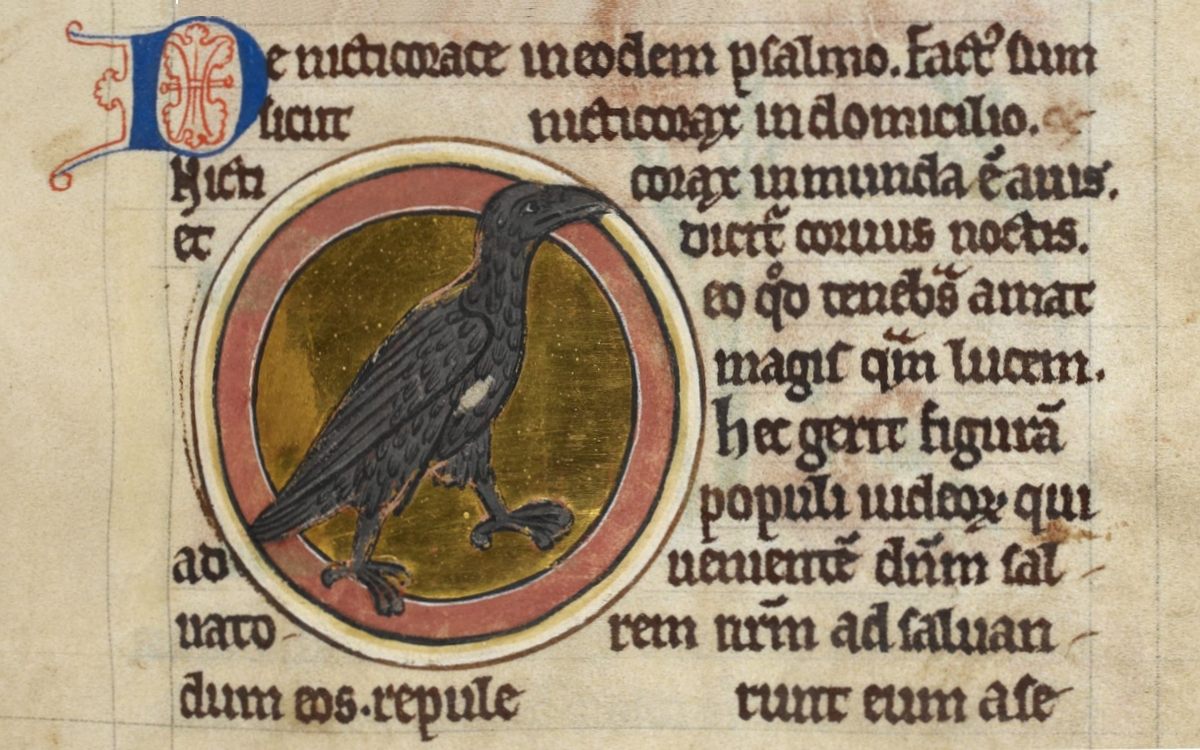 De nicticorace in eodem psalmo. Fact᷒ sum
sicut nicticorax in domicilio.
Nicticorax inmunda ē auis.
et dicit᷑ coruus noctis.
eo qͦd tenebᷓs amat
magis qᷓm lucem.
hec gerit figurā
populi iudeoꝝ qui
ad uenientē dn̄m sal
uatorem nr̄m ad saluan
dum eos. repulerunt eum a se